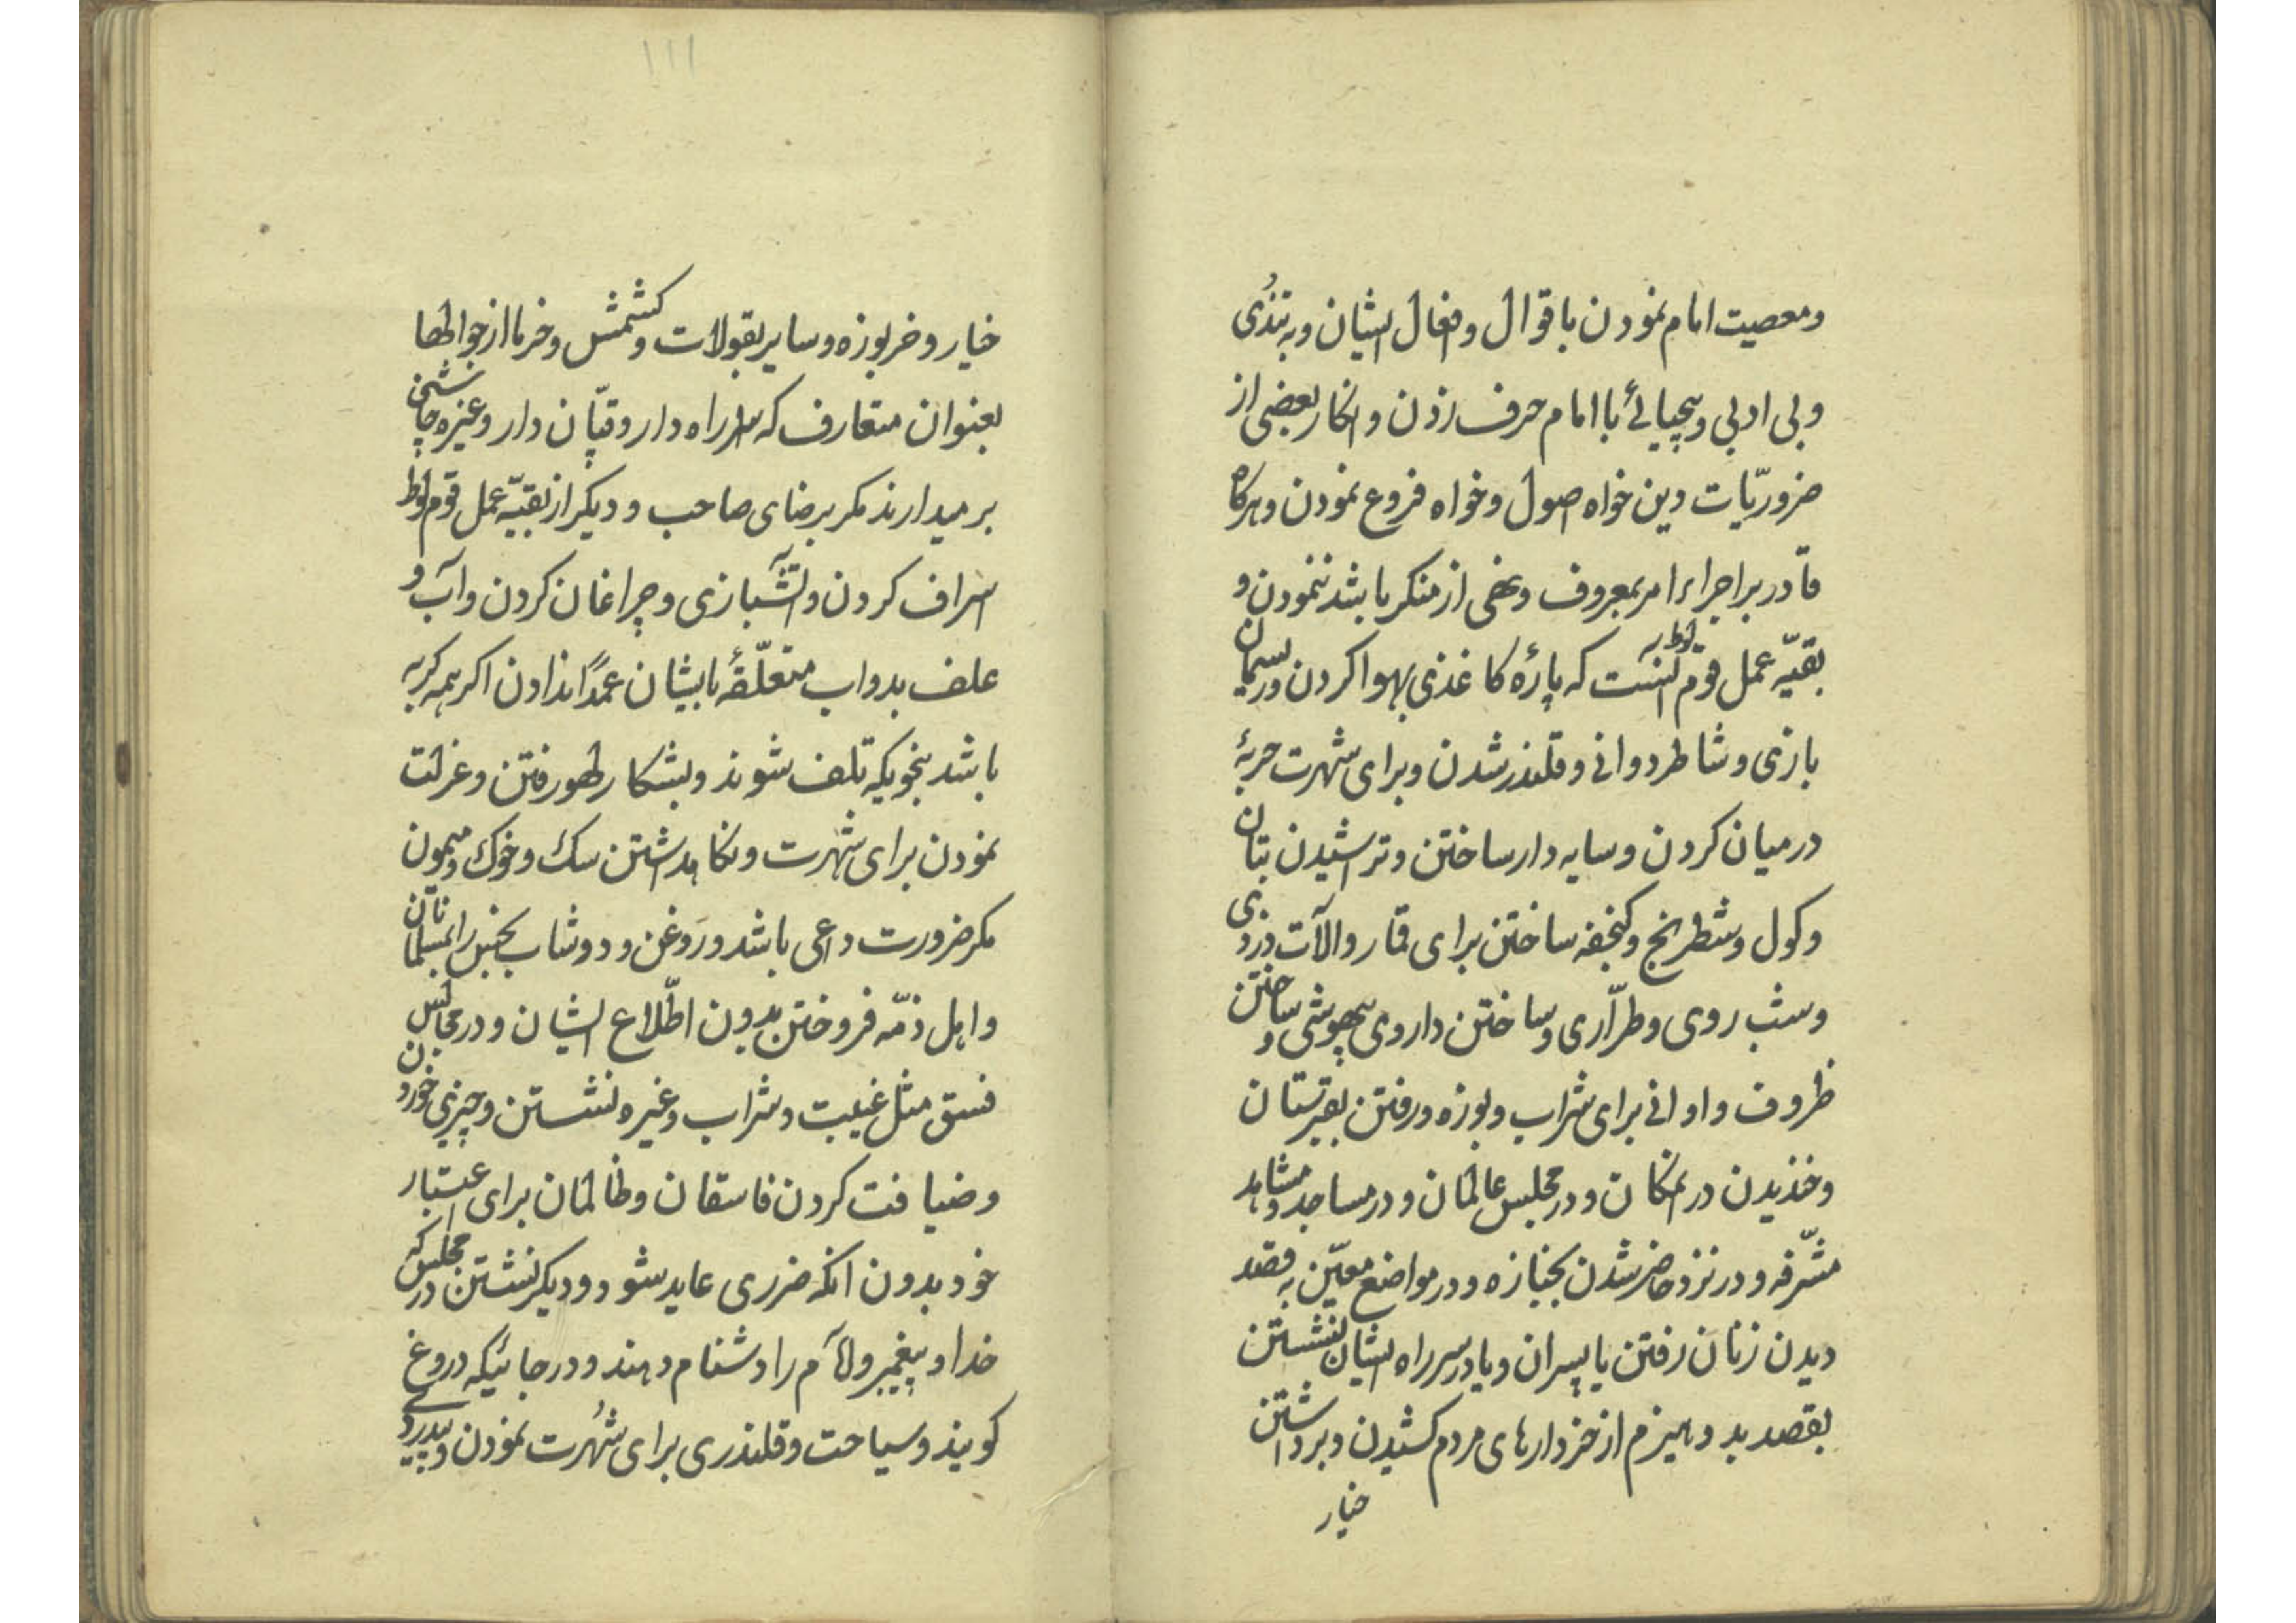 ومعصیت امام نمودن باقوال وافعال ایشان وبه تندی
وبی ادبی وبیحیائی با امام حرف زدن وانکار بعضی از
ضروریّات دین خواه اصول وخواه فروع نمودن وهرکاه
قادر بر اجراء امر بمعروف ونهی از منکر باشد ننمودن و
بقیّه عمل قوم لوط انست که پارهٔ کاغذی بهوا کردن وریسمان
بازی وشاطر دوانی وقلندر شدن وبرای شهرت حربهٔ
درمیان کردن وسایه دار ساختن وتراشیدن بتان
وکول وشطرنج وکنجفه ساختن برای قمار والآت دزدی
وشب روی وطرّاری وساختن داروی بیهوشی وساختن
ظروف واوانی برای شراب وبوزه ورفتن بقبرستان
وخندیدن در انمکان ودر مجلس عالمان ودر مساجد ومشاهد
مشرّفه ودر نزد حاضر شدن بجنازه ودر مواضع معیّن به قصد
دیدن زنان رفتن یا پسران ویا در سر راه ایشان نشستن
بقصد بد وهیزم از خردارهای مردم کشیدن وبرداشتن
خیار
۱۱۱
خیار وخربوزه وسایر بقولات وکشمش وخرما از جوالها
بعنوان متعارف که سر راه دار وقپّان دار وغیره چاشنی
بر میدارند مکر برضای صاحب ودیکر از بقیّه عمل قوم لوط
اسراف کردن وآتشبازی وچراغان کردن وآب و
علف بدواب متعلّقهٔ بایشان عمداً ندادن اکر همه کربه
باشد بنحویکه تلف شوند وبشکار لهو رفتن وعزلت
نمودن برای شهرت ونکاهداشتن سک وخوک ومیمون
مکر ضرورت داعی باشد وروغن ودوشاب نجس را بمسلمانان
واهل ذمّه فروختن بدون اطّلاع ایشان ودر مجالس
فسق مثل غیبت وشراب وغیره نشستن وچیزی خوردن
وضیافت کردن فاسقان وظالمان برای اعتبار
خود بدون انکه ضرری عاید شود ودیکر نشستن در مجلس که
خدا وپیغمبر وامام را دشنام دهند ودر جائیکه دروغ
کویند وسیاحت وقلندری برای شهرت نمودن